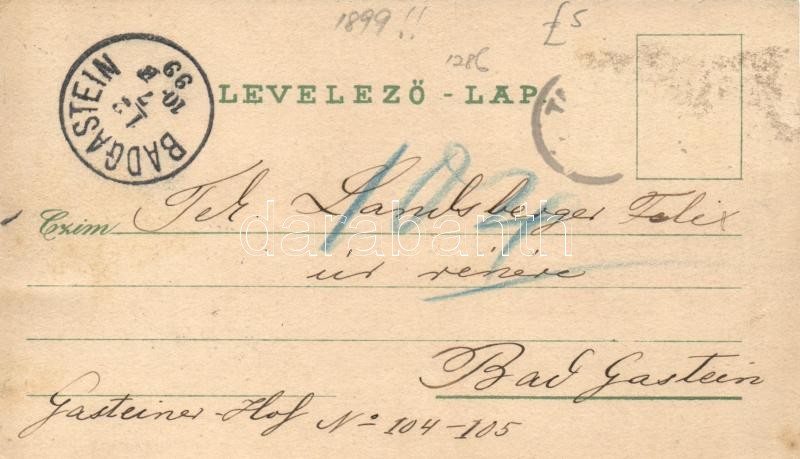 1899!!
£5
1286
BADGASTEIN
10. 7. 99
LEVELEZŐ - LAP.
Czim Tek Landsberger Felix
úr
Bad Gastein
Gasteiner-Hof No 104-105
darabanth